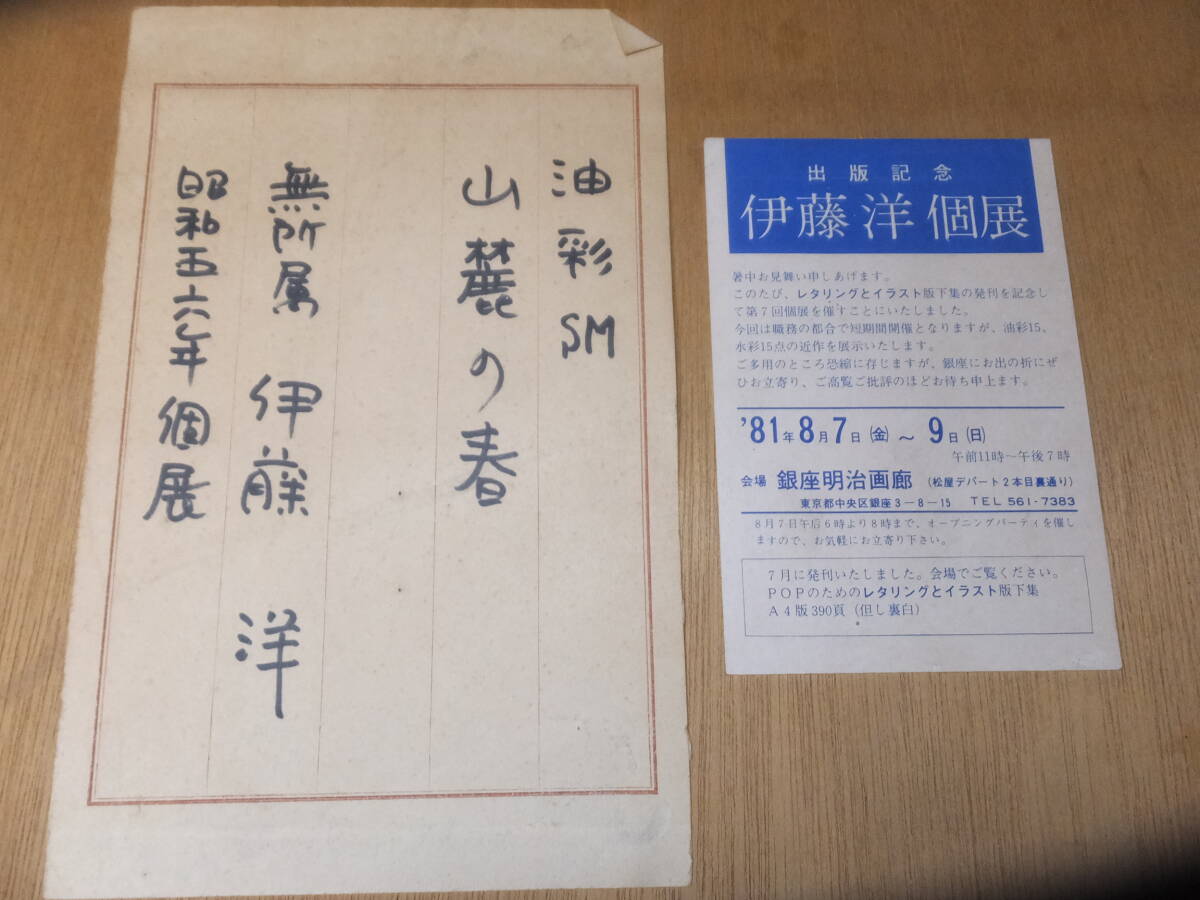 油彩SM
山麓の春
無所属 伊藤 洋
昭和五六年 個展
出版記念
伊藤 洋 個展
暑中お見舞い申しあげます。
このたび、レタリングとイラスト版下集の発刊を記念し
て第7回個展を催すことにいたしました。
今回は職務の都合で短期間開催となりますが、油彩15、
水彩15点の近作を展示いたします。
ご多用のところ恐縮に存じますが、銀座にお出の折にぜ
ひお立寄り、ご高覧ご批評のほどお待ち申上ます。
'81年8月7日(金)～9日(日)
午前11時～午後7時
会場 銀座明治画廊 (松屋デパート2本目裏通り)
東京都中央区銀座3-8-15 TEL 561-7383
8月7日午后6時より8時まで、オープニングパーティを催し
ますので、お気軽にお立寄り下さい。
7月に発刊いたしました。会場でご覧ください。
POPのためのレタリングとイラスト版下集
A4版390頁（但し裏白）